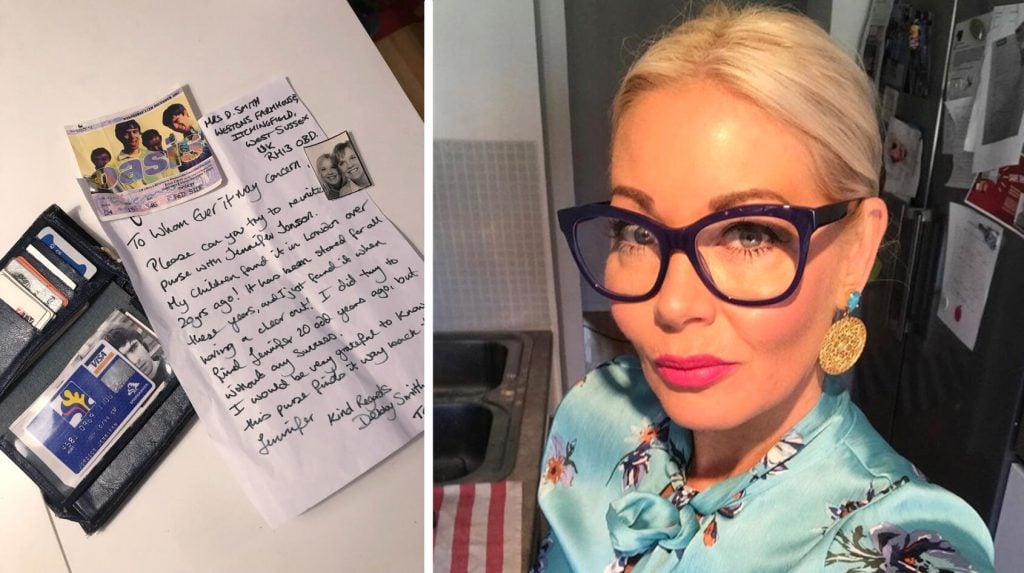 oasis
RED SIDE
MRS D. SMITH
WESTONS FARMHOUSE,
ITCHINGFIELD,
WEST SUSSEX
UK
RH13 0BD.
To Whom Ever it May Concern.
Please can you try to reunite
purse with Jennifer Jonson.
My Children found it in London over
20yrs ago! It has been stored for all
these years, and I just found it when
having a clear out! I did try to
find Jennifer 20 000 years ago, but
without any success
I would be very grateful to know
this purse finds it way back
Jennifer Kind Regards
Debby Smith
VISA